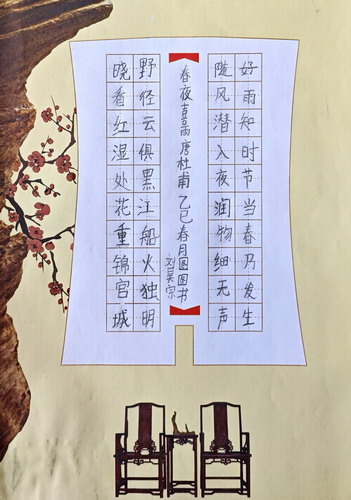 好雨知时节当春乃发生
随风潜入夜润物细无声
春夜喜雨唐杜甫乙巳春月书
刘昊宗
野径云俱黑江船火独明
晓看红湿处花重锦官城